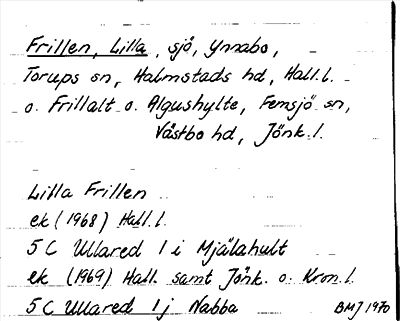 Frillen, Lilla, sjö, Ynnabo,
Torups sn, Halmstads hd, Hall.l.
o. Frillalt o. Algushylte, Femsjö sn,
Västbo hd, Jönk.l.
Lilla Frillen
ek (1968) Hall.l.
5 C Ullared 1 i Mjälahult
ek (1969) Hall. samt Jönk. o. Kron.l.
5 C Ullared 1 j Nabba BMJ 1970